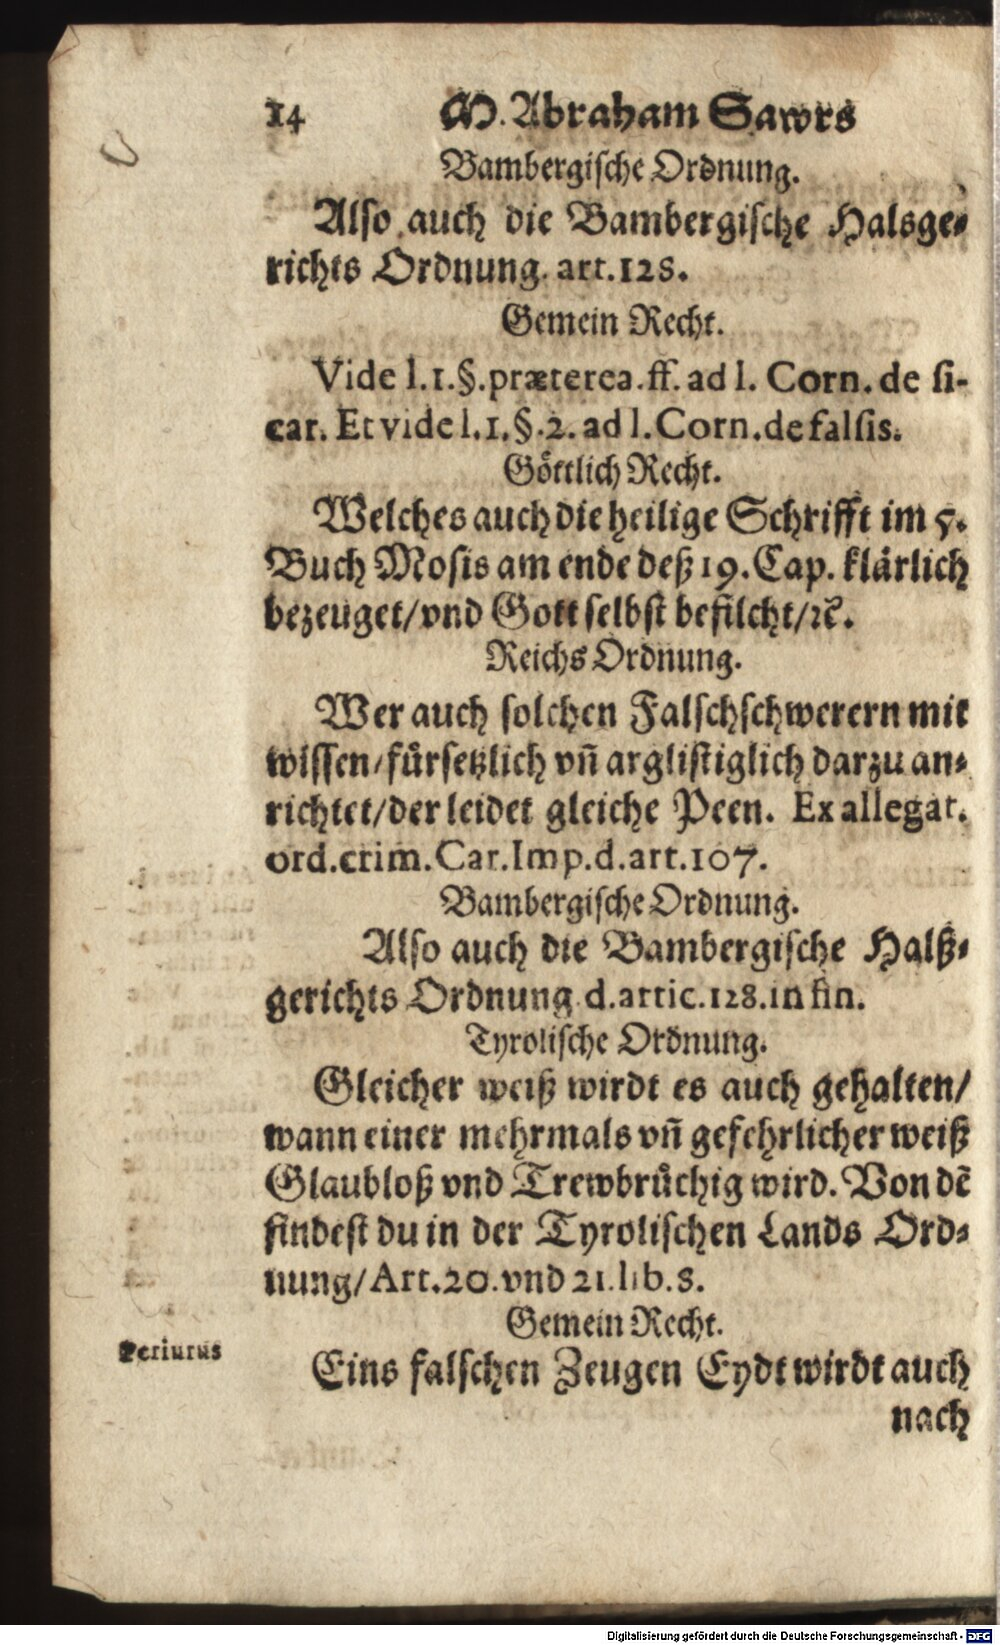 14 M. Abraham Sawrs
Bambergische Ordnung.
Also auch die Bambergische Halsge-
richts Ordnung. art. 128.
Gemein Recht.
Vide l. 1. §. præterea. ff. ad l. Corn. de si-
car. Et vide l. 1. §. 2. ad l. Corn. de falsis.
Göttlich Recht.
Welches auch die heilige Schrifft im 5.
Buch Mosis am ende deß 19. Cap. klärlich
bezeuget/ vnd Gott selbst befilcht/ ꝛc.
Reichs Ordnung.
Wer auch solchen Falschschwerern mit
wissen/ fürsetzlich vn̄ arglistiglich darzu an-
richtet/ der leidet gleiche Peen. Ex allegat.
ord. crim. Car. Imp. d. art. 107.
Bambergische Ordnung.
Also auch die Bambergische Halß-
gerichts Ordnung d. artic. 128. in fin.
Tyrolische Ordnung.
Gleicher weiß wirdt es auch gehalten/
wann einer mehrmals vn̄ gefehrlicher weiß
Glaubloß vnd Trewbrüchig wird. Von dē
findest du in der Tyrolischen Lands Ord-
nung/ Art. 20. vnd 21. lib. 8.
Gemein Recht.
Periurus
Eins falschen Zeugen Eydt wirdt auch
nach
Digitalisierung gefördert durch die Deutsche Forschungsgemeinschaft - DFG